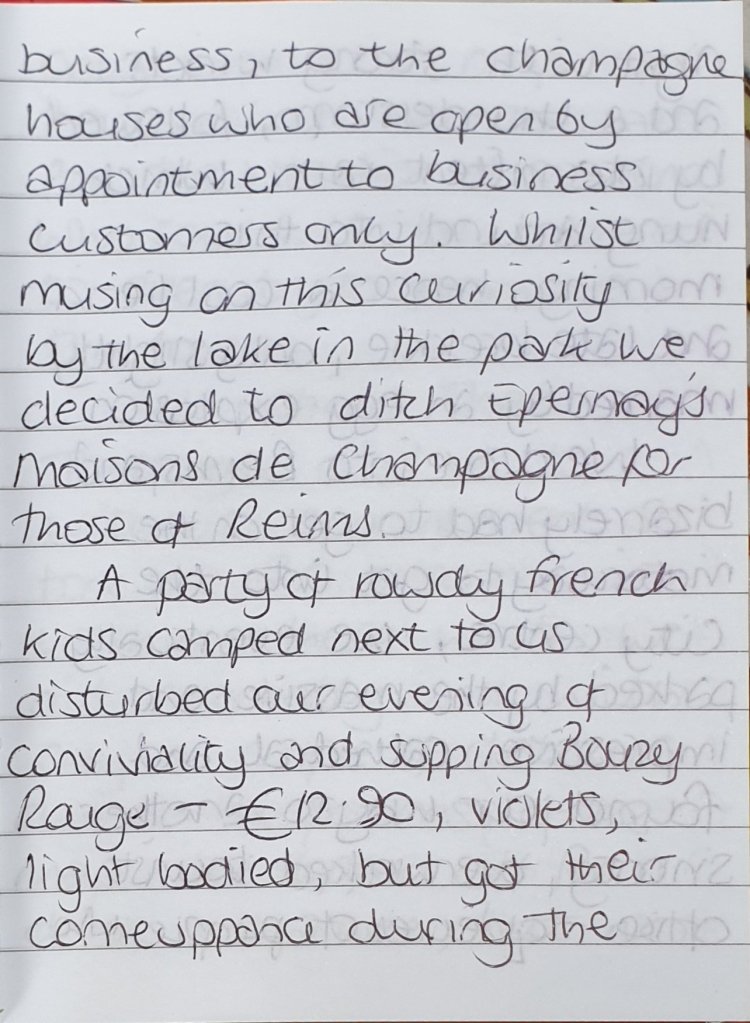 business, to the champagne
houses who are open by
appointment to business
customers only. Whilst
musing on this curiosity
by the lake in the park we
decided to ditch Epernay's
maisons de Champagne for
those of Reims.
A party of rowdy french
kids camped next to us
disturbed our evening of
conviviality and sopping Bouzy
Rouge - €12.90, violets,
light bodied, but got their
comeuppance during the